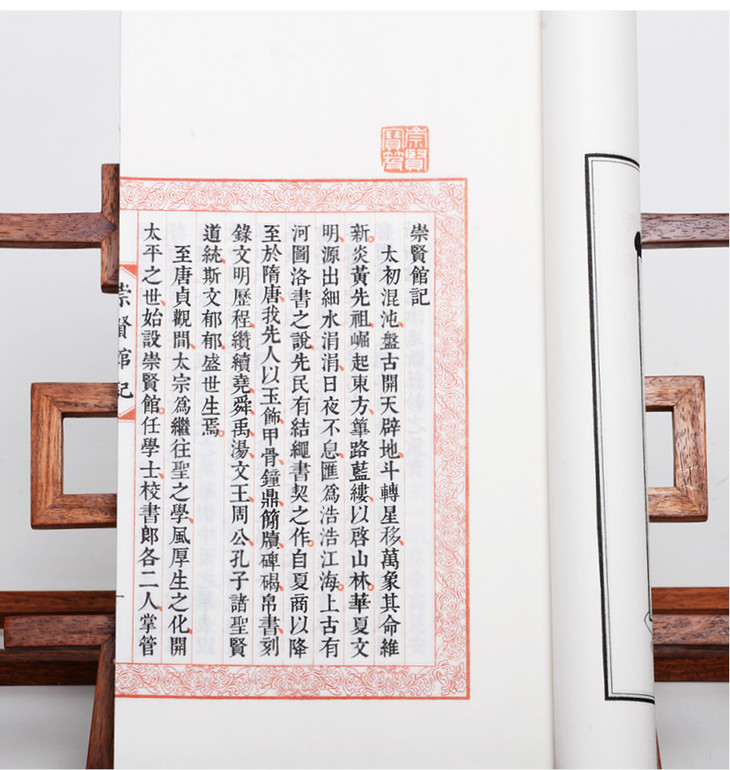 崇賢寶
崇賢館記
太初混沌、盤古開天辟地、斗轉星移、萬象其命維
新。炎黃先祖、崛起東方、篳路藍縷、以啓山林。華夏文
明、源出細水涓涓、日夜不息、匯爲浩浩江海。上古有
河圖洛書之說、先民有結繩書契之作。自夏商以降
至於隋唐、我先人以玉飾、甲骨、鐘鼎、簡牘、碑碣、帛書、刻
錄文明歷程、纘續堯、舜、禹、湯、文王、周公、孔子諸聖賢
道統、斯文郁郁、盛世生焉。
至唐貞觀間、太宗爲繼往聖之學、風厚生之化、開
太平之世、始設崇賢館。任學士、校書郎各二人、掌管
崇賢館記